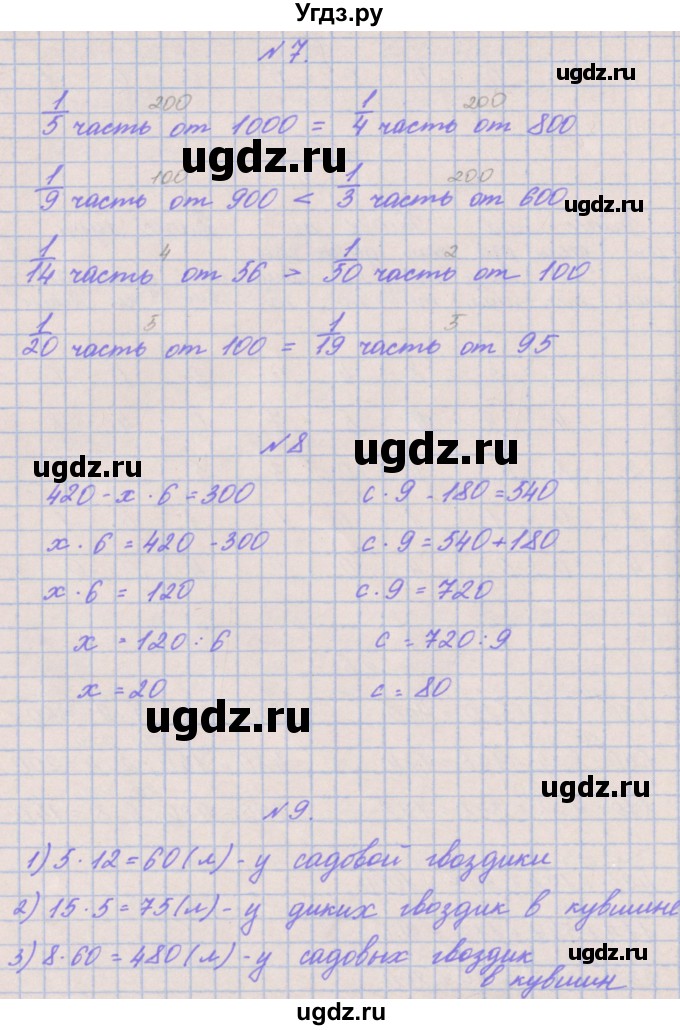 Угдз.ру
№7.
ugdz.ru
200 200
1/5 часть от 1000 = 1/4 часть от 800
ugdz.ru
100 200
1/9 часть от 900 < 1/3 часть от 600
ugdz.ru
4 2
1/14 часть от 56 > 1/50 часть от 100
5 5
1/20 часть от 100 = 1/19 часть от 95
№8
ugdz.ru
ugdz.ru
420 - х · 6 = 300 с · 9 - 180 = 540
х · 6 = 420 - 300 с · 9 = 540 + 180
ugdz.ru ugdz.ru
х · 6 = 120 с · 9 = 720
х = 120 : 6 с = 720 : 9
х = 20 с = 80
ugdz.ru
ugdz.ru
№9.
1) 5 · 12 = 60 (л) - у садовой гвоздики
ugdz.ru
2) 15 · 5 = 75 (л) - у диких гвоздик в кувшине
3) 8 · 60 = 480 (л) - у садовых гвоздик
ugdz.ru
в кувшин
ugdz.ru